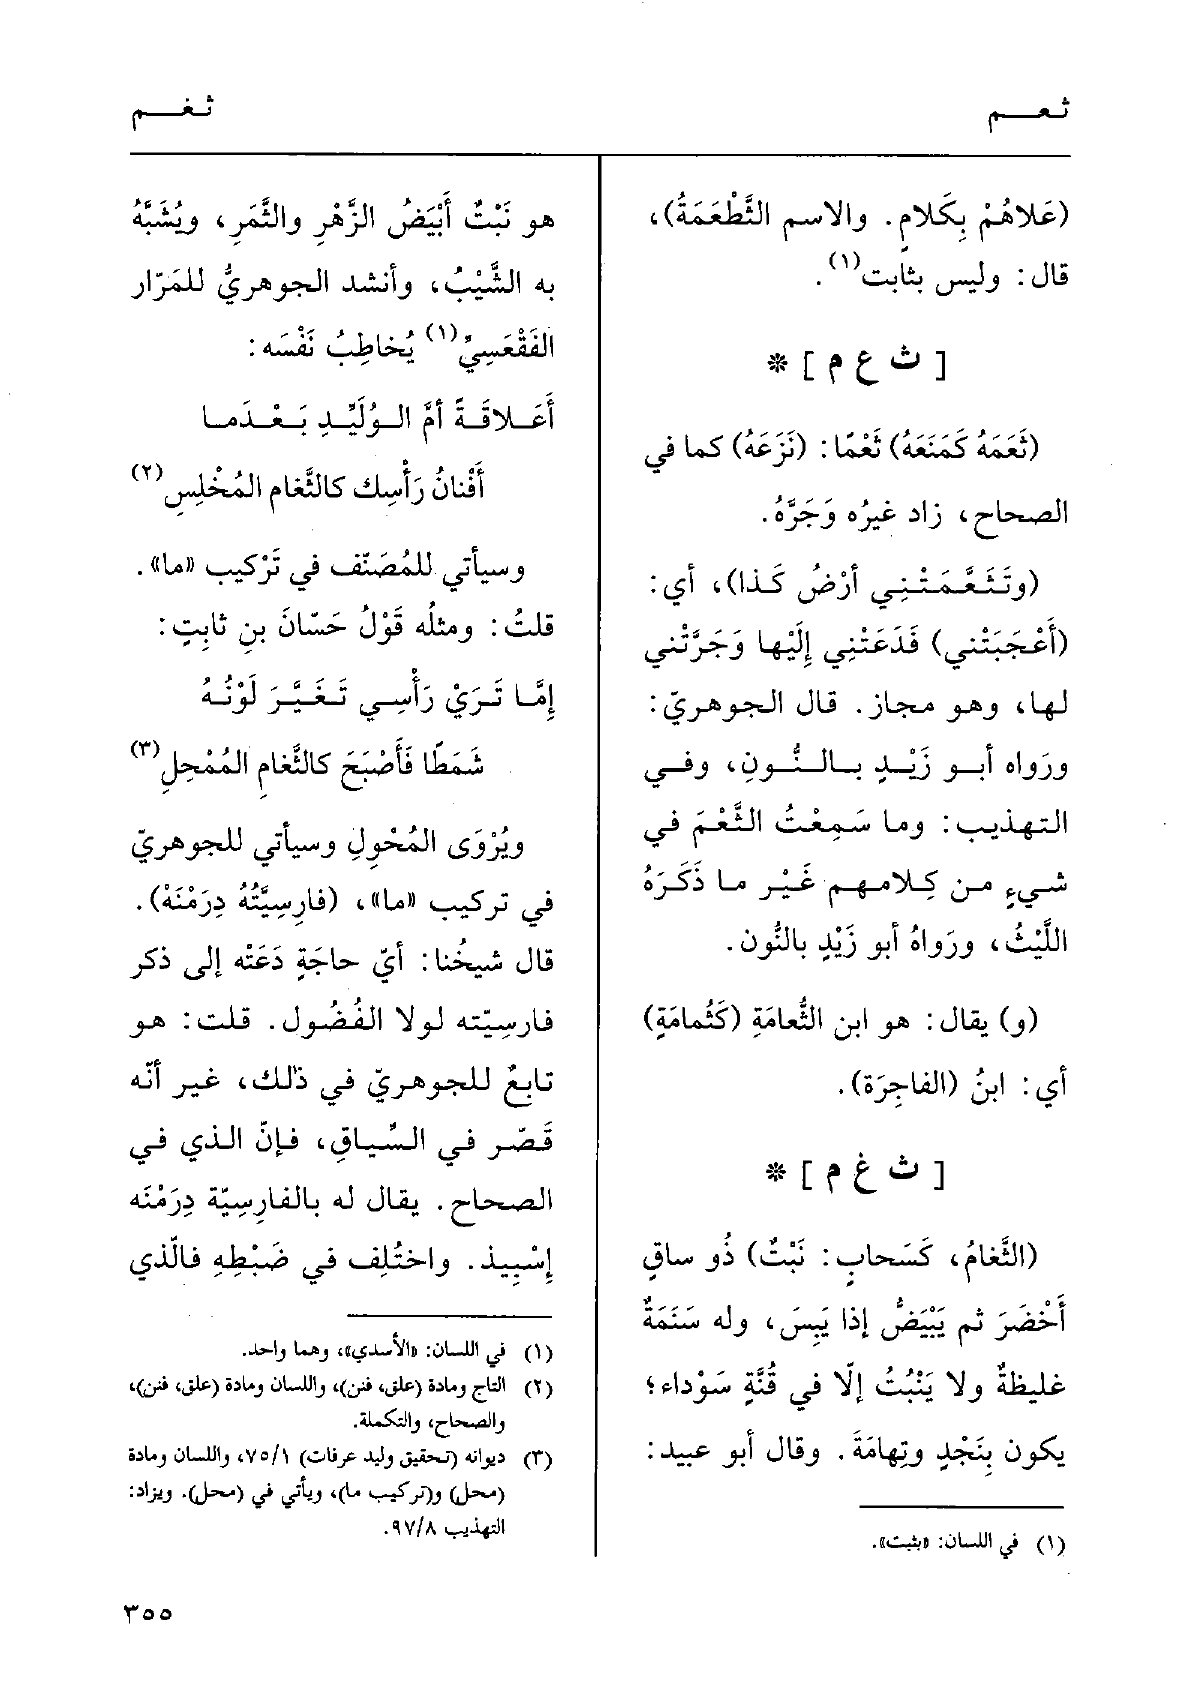 ثعم
ثغم
(عَلاهُمْ بِكَلامٍ. والاسم الثَّطْعَمَةُ)،
قال: وليس بثابت(١).
[ ث ع م ] *
(ثَعَمَهُ كَمَنَعَهُ) ثَعْمًا: (نَزَعَهُ) كما في
الصحاح، زاد غيرُه وَجَرَّهُ.
(وتَثَعَّمَتْنِي أَرْضُ كَذا)، أي:
(أَعْجَبَتْني) فَدَعَتْنِي إِلَيْها وَجَرَّتْني
لها، وهو مجاز. قال الجوهريّ:
ورَواه أبو زَيْدٍ بالنُّونِ، وفي
التهذيب: وما سَمِعْتُ الثَّعْمَ في
شيءٍ من كِلامهم غَيْر ما ذَكَرَهُ
اللَّيْثُ، ورَواهُ أبو زَيْدٍ بالنُّون.
(و) يقال: هو ابن الثُّعامَةِ (كَثُمامَةٍ)
أي: ابنُ (الفاجِرَة).
[ ث غ م ] *
(الثَّغامُ، كَسَحابٍ: نَبْتٌ) ذُو ساقٍ
أَخْضَرَ ثم يَبْيَضُّ إذا يَبِسَ، وله سَنَمَةٌ
غليظةٌ ولا يَنْبُتُ إلّا في قُنَّةٍ سَوْداء؛
يكون بِنَجْدٍ وتِهامَةَ. وقال أبو عبيد:
(١) في اللسان: «بثبت».
هو نَبْتٌ أَبْيَضُ الزَّهْرِ والثَّمَرِ، ويُشَبَّهُ
به الشَّيْبُ، وأنشد الجوهريُّ للمَرّار
الفَقْعَسِيِّ(١) يُخاطِبُ نَفْسَه:
أَعَلاقَةً أمَّ الوُلَيِّدِ بَعْدَما
أَفْنانُ رَأْسِك كالثَّغام المُخْلِسِ(٢)
وسيأتي للمُصَنّف في تَرْكيب «ما».
قلتُ: ومثلُه قَوْلُ حَسّانَ بن ثابِتٍ:
إمَّا تَرَيْ رَأْسِي تَغَيَّرَ لَوْنُهُ
شَمَطًا فَأَصْبَحَ كالثَّغامِ المُمْحِلِ(٣)
ويُرْوَى المُحْوِلِ وسيأتي للجوهريّ
في تركيب «ما»، (فارِسِيَّتُهُ دِرَمْنَهْ).
قال شيخُنا: أيّ حاجَةٍ دَعَتْه إلى ذكر
فارسيّته لولا الفُضُول. قلت: هو
تابعٌ للجوهريّ في ذٰلك، غير أنّه
قَصّر في السِّياقِ، فإنّ الذي في
الصحاح. يقال له بالفارِسِيّة دِرَمْنَه
إسْبِيذ. واختُلِف في ضَبْطِهِ فالّذي
(١) في اللسان: «الأسدي»، وهما واحد.
(٢) التاج ومادة (علق، فنن)، واللسان ومادة (علق، فنن)،
والصحاح، والتكملة.
(٣) ديوانه (تحقيق وليد عرفات) ٧٥/١، واللسان ومادة
(محل) و(تركيب ما)، ويأتي في (محل). ويزاد:
التهذيب ٩٧/٨.
٣٥٥